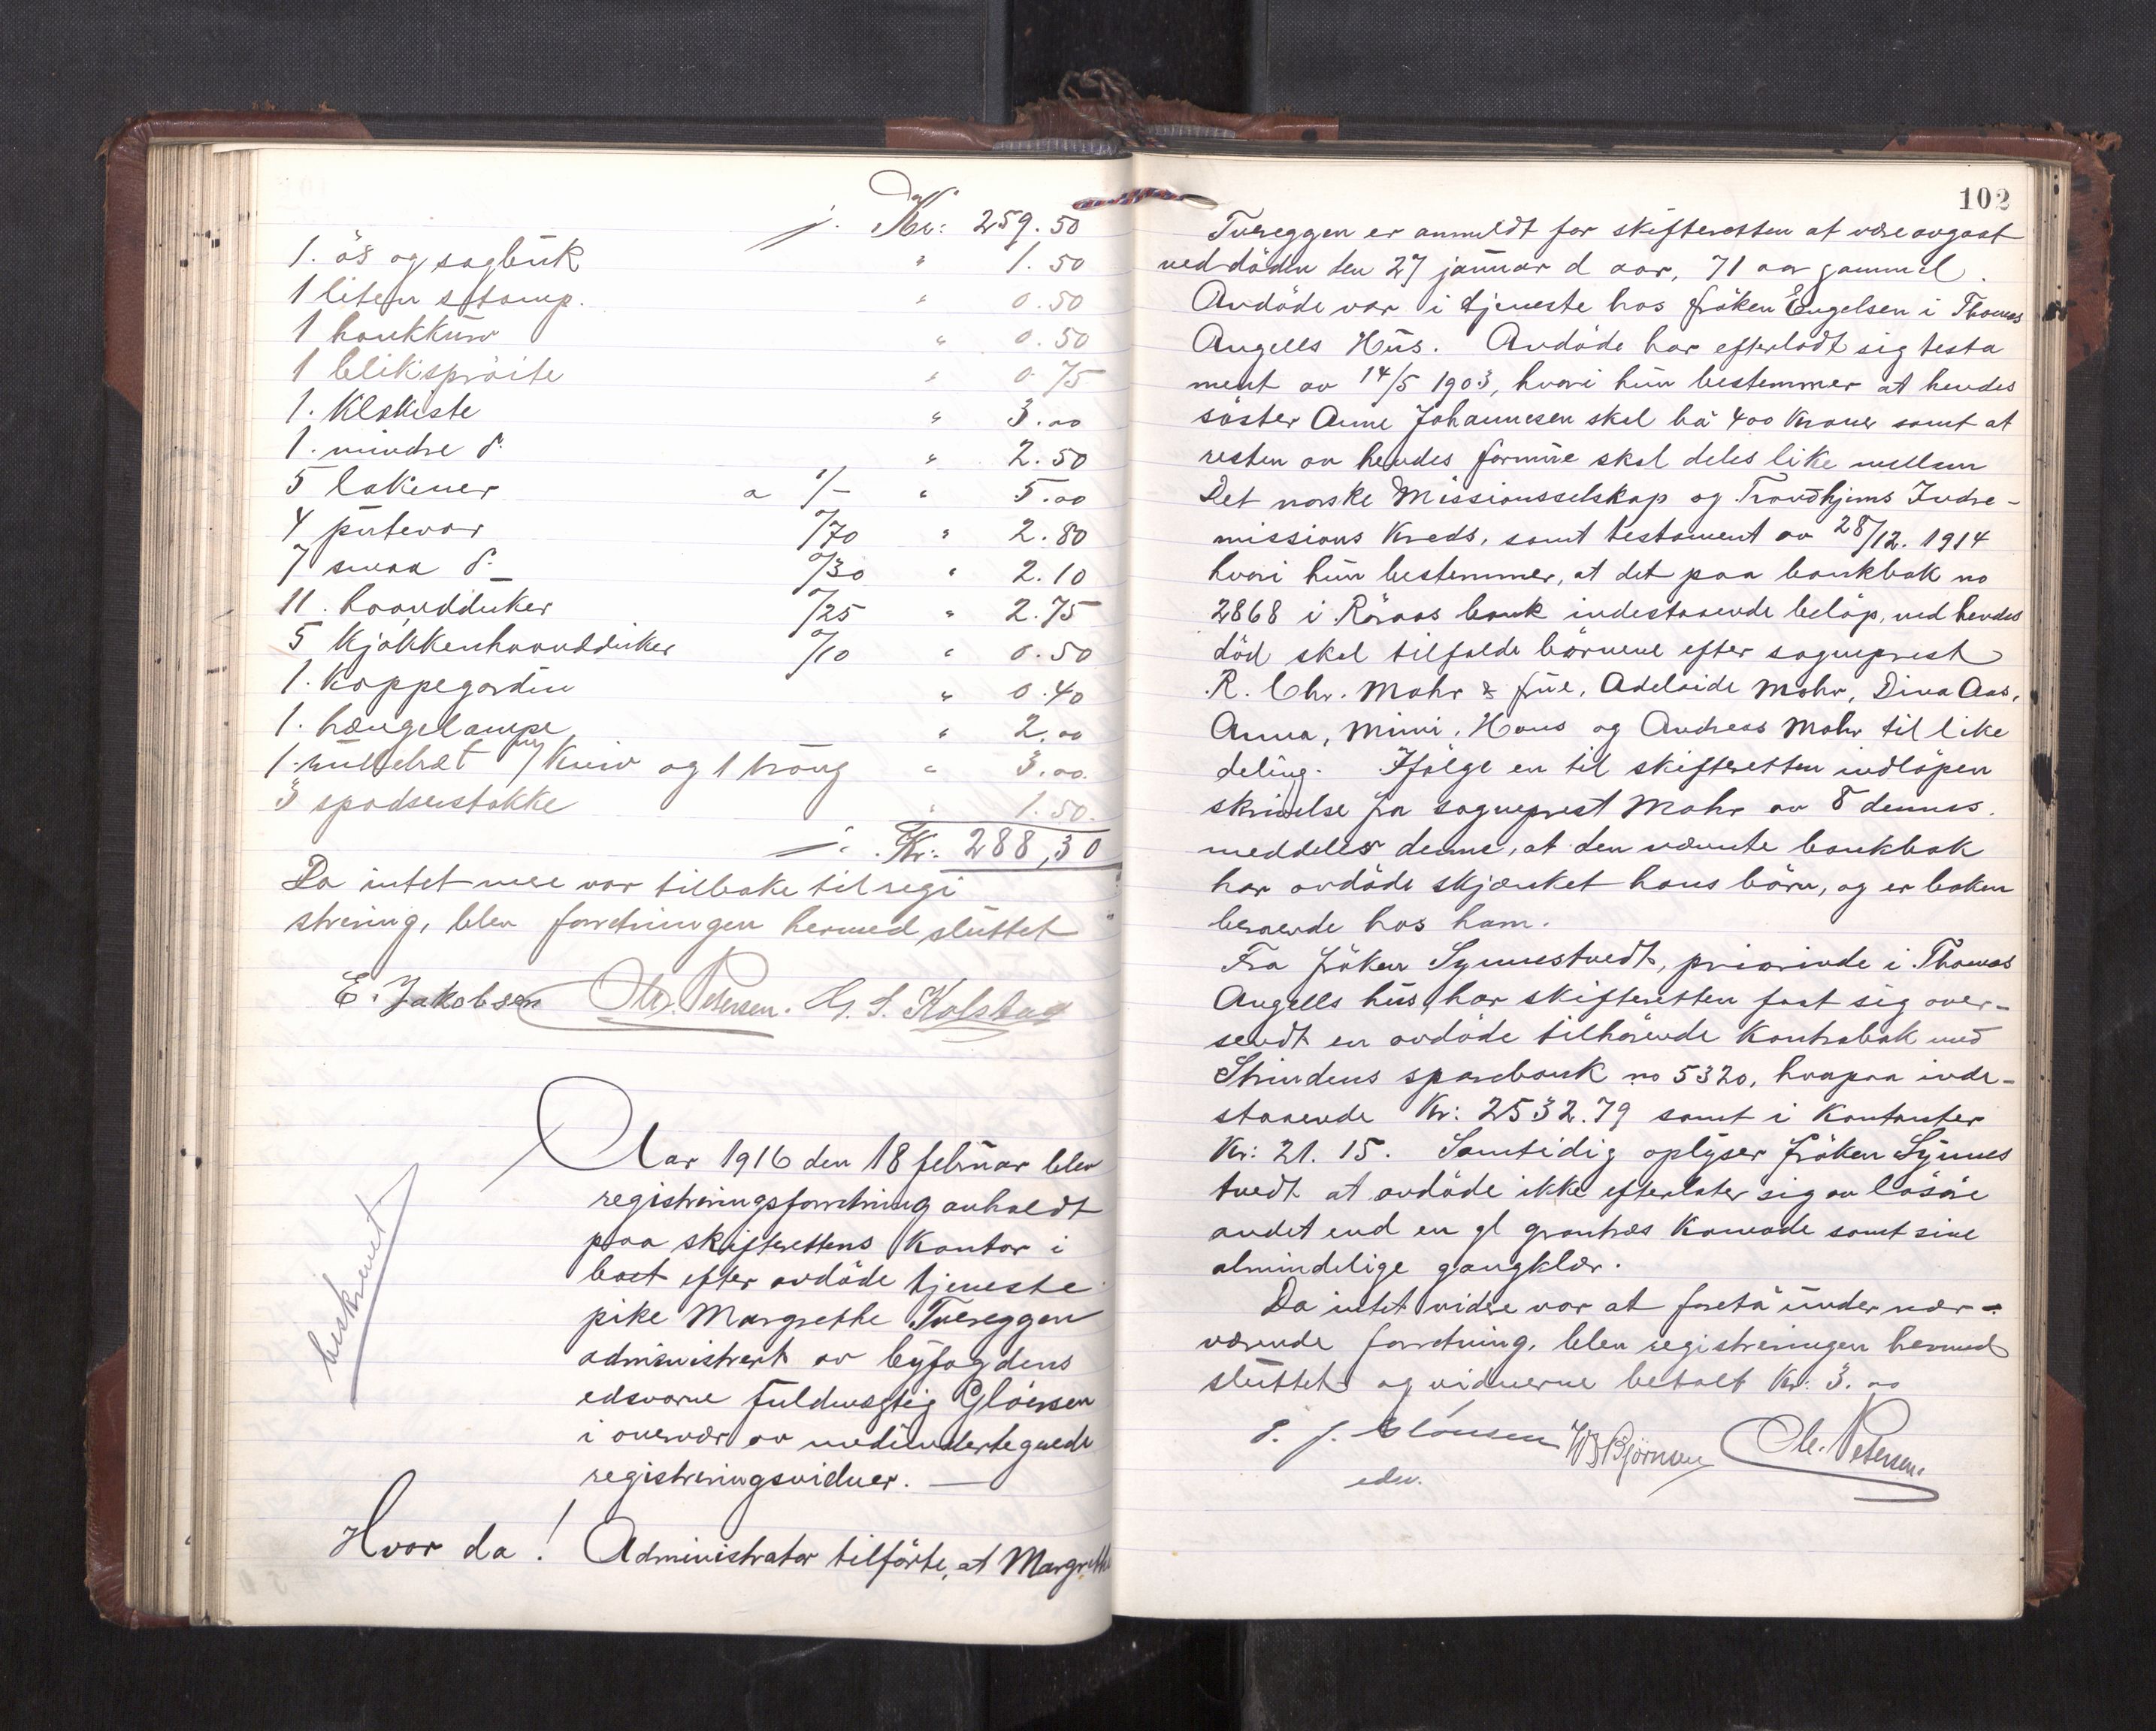 j. Kr: 259.50
1. ös og sagbuk " 1.50
1 liten stamp. " 0.50
1 hankkurv " 0.50
1 bliksprøite " 0.75
1. Klækiste " 3.00
1. mindre d. " 2.50
5 lakener a 1/- " 5.00
4 putevar /70 " 2.80
7 smaa d. /30 " 2.10
11. haandduker /25 " 2.75
5 kjøkkenhaandduker /10 " 0.50
1. kappegardin " 0.40
1. hængelampe " 2.00
1. rullebræt m/ kniv og 1 trång " 3.00.
3 spadserstokke " 1.50.
Kr: 288,30
Da intet mere var tilbake til regi
strering, blev forretningen hermed sluttet
E. Jakobsen Chr. Petersen.
beskrevet
Aar 1916 den 18 februar blev
registreringsforretning avholdt
paa skifterettens kontor i
boet efter avdöde tjeneste
pike Margrethe Tvereggen
administrert av byfogdens
edsvorne fuldmegtig Glöersen
i overvær av medundertegnede
registreringsvidner. —
Hvor da! Administrator tilförte, at Margrethe
102
Tvereggen er anmeldt for skifteretten at være avgaat
ved döden den 27 januar d aar, 71 aar gammel.
Avdöde var i tjeneste hos fröken Engelsen i Thomas
Angells Hus. Avdöde har efterladt sig testa
ment av 14/5 1903, hvori hun bestemmer at hendes
söster Anne Johannesen skal ha 400 kroner samt at
resten av hendes formue skal deles like mellem
Det norske Missionsselskap og Trondhjems Indre-
missions Kreds, samt testament av 28/12. 1914
hvori hun bestemmer, at det paa bankbok no
2868 i Röraas bank indestaaende belöp, ved hendes
död skal tilfalde börnene efter sogneprest
R. Chr. Mohr & frue, Adelaide Mohr, Dina Aas,
Anna, Mimi, Hans og Andreas Mohr til like
deling. Ifölge en til skifteretten indlöpen
skrivelse fra sogneprest Mohr av 8 dennes.
meddeles denne, at den nævnte bankbok
har avdöde skjænket hans börn, og er boken
beroende hos ham.
Fra fröken Synnestvedt, priorinde i Thomas
Angells hus, har skifteretten faat sig over-
sendt en avdöde tilhörende Kontrabok med
Strindens sparebank no 5320, hvorpaa inde-
staaende Kr: 2532.79 samt i Kontanter
Kr: 21.15. Samtidig oplyser fröken Synnes
tvedt at avdöde ikke efterlater sig av lösöre
andet end en gl grantræs Komode samt sine
almindelige gangklær.
Da intet videre var at foreta under nær-
værende forretning, blev registreringen hermed
sluttet og vidnerne betalt Kr: 3.00
Glöersen W Björnsen Chr. Petersen.
edsv.